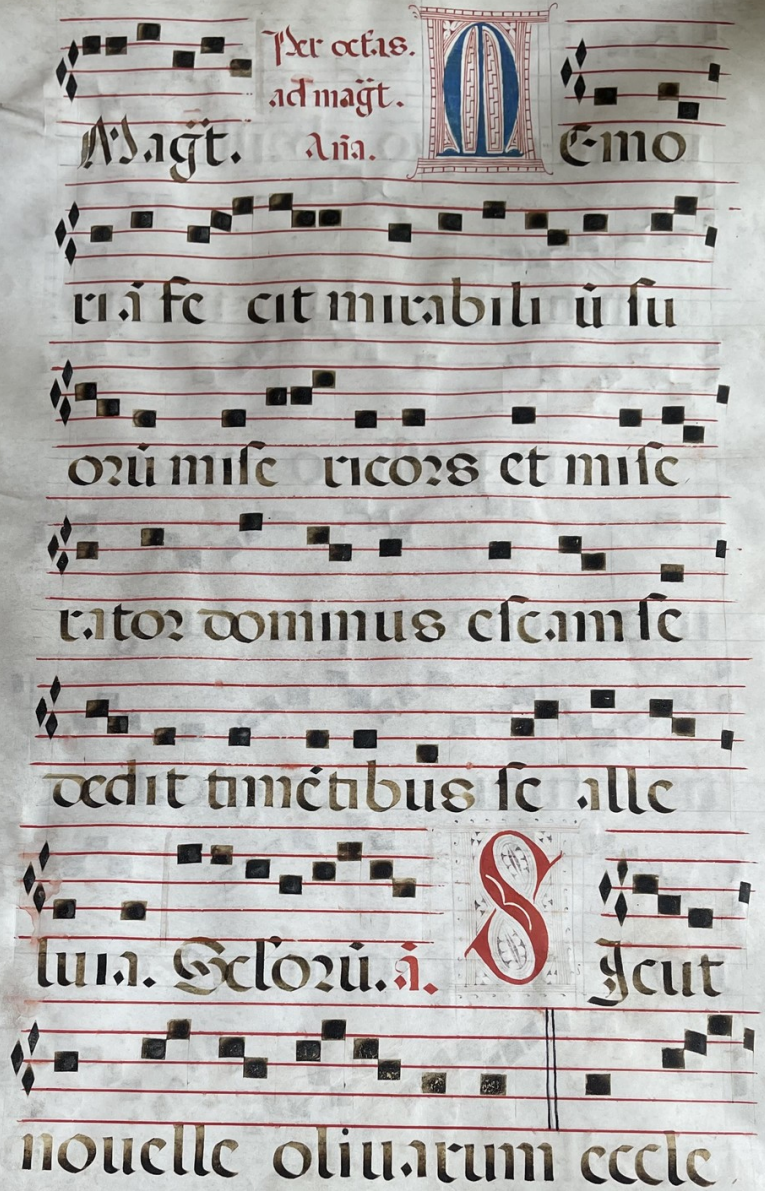 Per octãs.
ad mag̃t.
Magt̃. Añа. MEmo
riã fe cit mirabili ũ ſu
orũ miſe ricors et miſe
rator dominus eſcam ſe
dedit timẽtibus ſe alle
luia. Sclorũ. ã. SIcut
nouelle oliuarum eccle